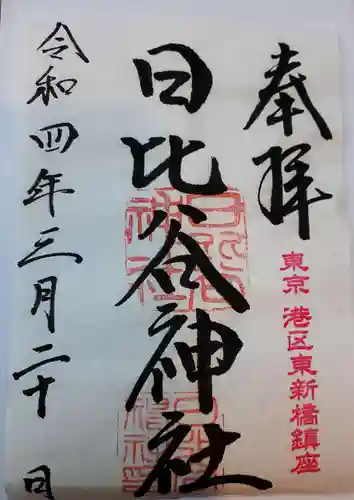 奉拝
東京 港区東新橋鎮座
日比谷神社
日比谷神社
令和四年三月二十日